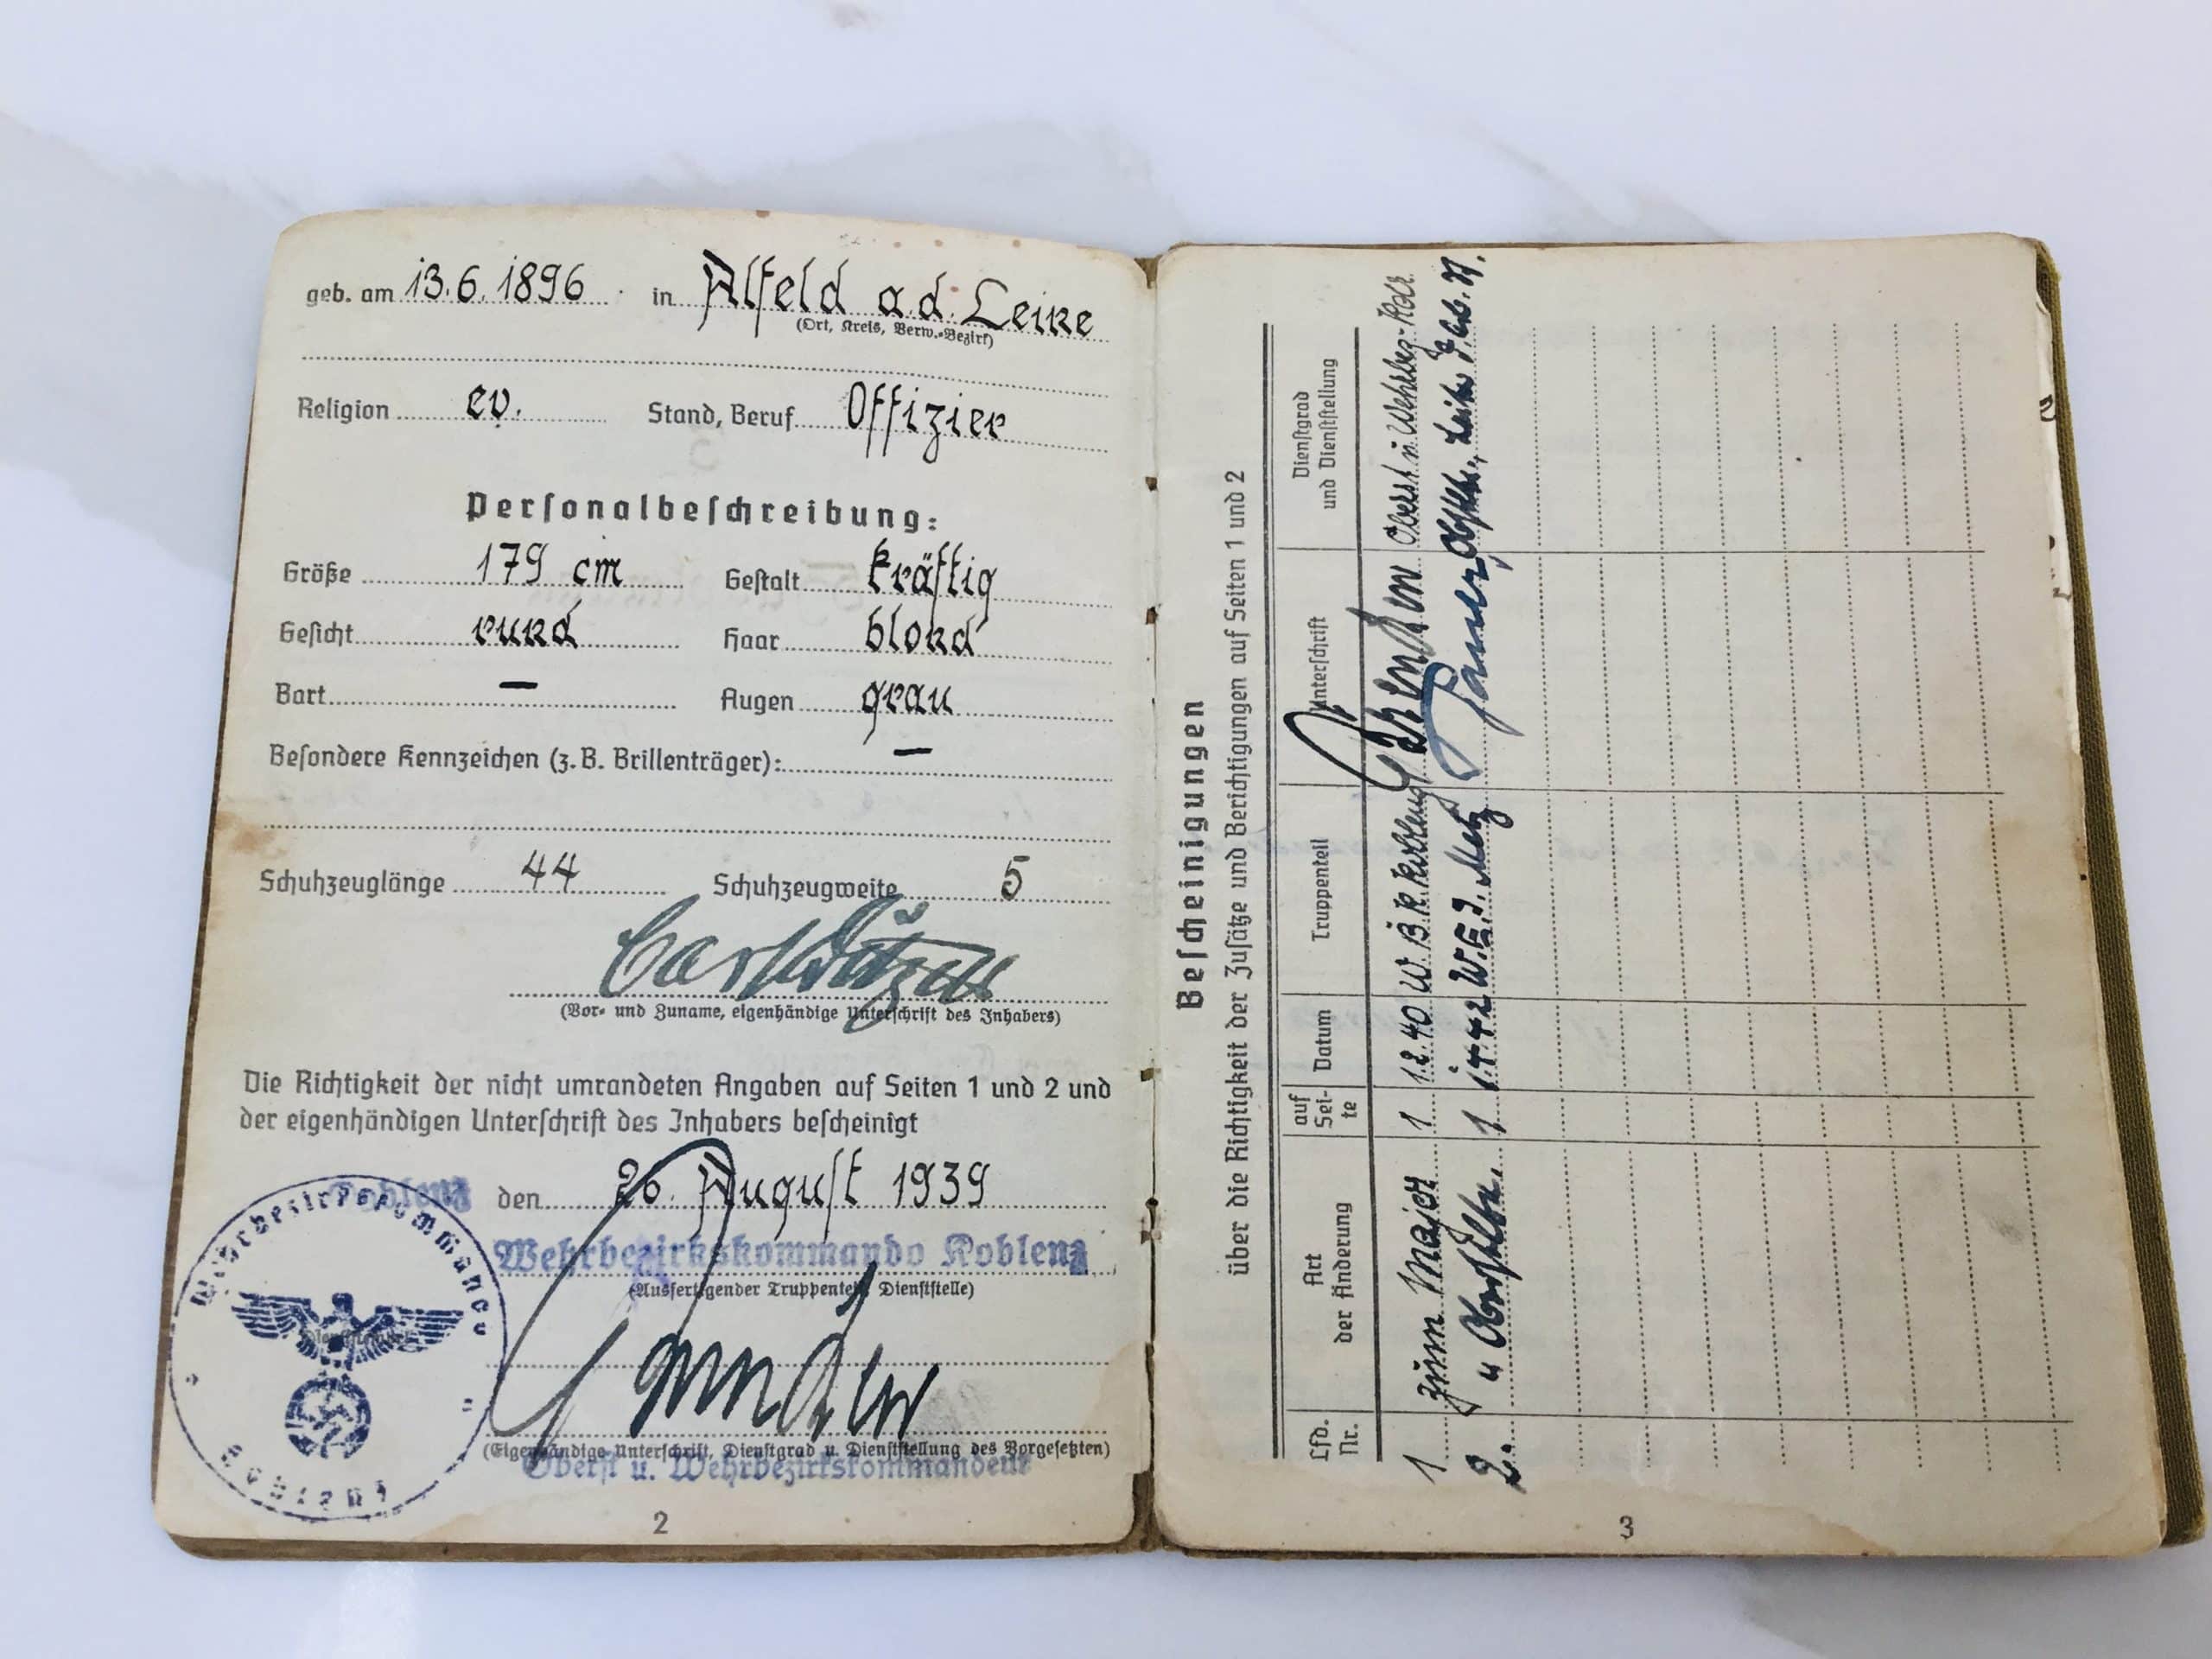 geb. am 13.6.1896 in Alfeld a.d. Leine
(Ort, Kreis, Verw.-Bezirk)
Religion ev. Stand, Beruf Offizier
Personalbeschreibung:
Größe 179 cm Gestalt kräftig
Gesicht rund Haar blond
Bart — Augen grau
Besondere Kennzeichen (z. B. Brillenträger): —
Schuhzeuglänge 44 Schuhzeugweite 5
Carl
(Vor- und Zuname, eigenhändige Unterschrift des Inhabers)
Die Richtigkeit der nicht umrandeten Angaben auf Seiten 1 und 2 und
der eigenhändigen Unterschrift des Inhabers bescheinigt
Koblenz den 26. August 1939
Wehrbezirkskommando Koblenz
(Ausfertigender Truppenteil, Dienststelle)
(Eigenhändige Unterschrift, Dienstgrad u. Dienststellung des Vorgesetzten)
Oberst u. Wehrbezirkskommandeur
Wehrbezirkskommando
Dienststempel
Koblenz
2
Bescheinigungen
über die Richtigkeit der Zusätze und Berichtigungen auf Seiten 1 und 2
Lfd. Nr. Art der Änderung auf Seite Datum Truppenteil Unterschrift Dienstgrad und Dienststellung
1 zum Major 1 1.2.40 W.B.K. Koblenz Oberst u. Wehrbez.-Kdr.
2. " Oberstltn. 1 1.4.42 W.E.I. Metz
3